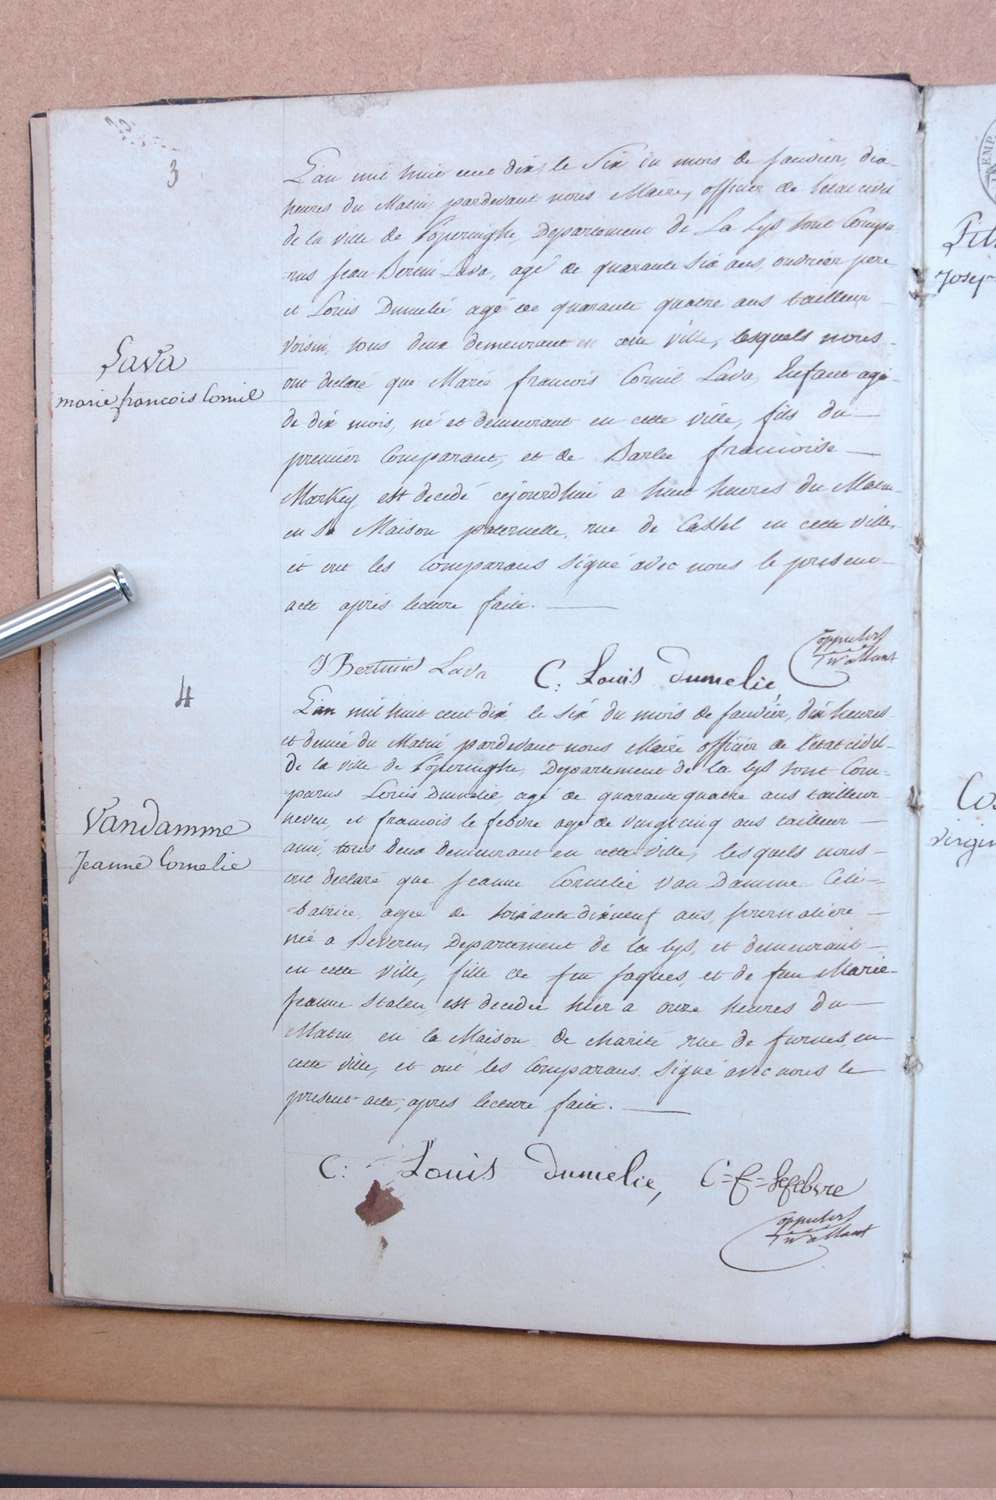 3
L'an mil huit cent dix, le Six du mois de janvier, dix
heures du Matin, pardevant nous Maire, officier de l'état civil
de la ville de Poperinghe, Departement de La Lys sont Compa-
rus jean Bertin Lava, agé de quarante Six ans, ouvrier, pere
et Louis Dumelié agé de quarante quatre ans tailleur
Voisin, tous deux demeurant en cette ville, lesquels nous
Lava
marie francois Cornil
ont declaré que Marie francois Cornil Lava, Enfant agé
de dix mois, né et demeurant en cette ville, fils du
premier Comparant, et de Barbe francoise
Markey est decedé cejourdhui a huit heures du Matin
en Sa Maison paternelle, rue de Cassel en cette ville,
et ont les Comparans Signé avec nous le present
acte après lecture faite.
J Bertinus Lava C: Louis Dumelie,
4
L'an mil huit cent dix le Six du mois de janvier, dix heures
et demie du Matin pardevant nous Maire officier de l'etat civil
de la ville de Poperinghe, Departement de la Lys sont Com-
parus Louis Dumelie, agé de quarante quatre ans tailleur
neveu, et francois le febvre agé de vingt cinq ans tailleur
Vandamme
Jeanne Cornelie
ami, tous deux demeurant en cette ville, lesquels nous
ont declaré que jeanne Cornelie Van Damme Celi-
bataire, agée de soixante dixneuf ans, journaliere
née a Beveren, Departement de la Lys, et demeurant
en cette ville, fille de feu jaques, et de feue Marie
jeanne Stalen, est decedée hier a onze heures du
Matin en la Maison de Charité rue de furnes, en
cette ville, et ont les Comparans Signé avec nous le
present acte, apres lecture faite.
C: Louis Dumelie, C=F= Lefebvre